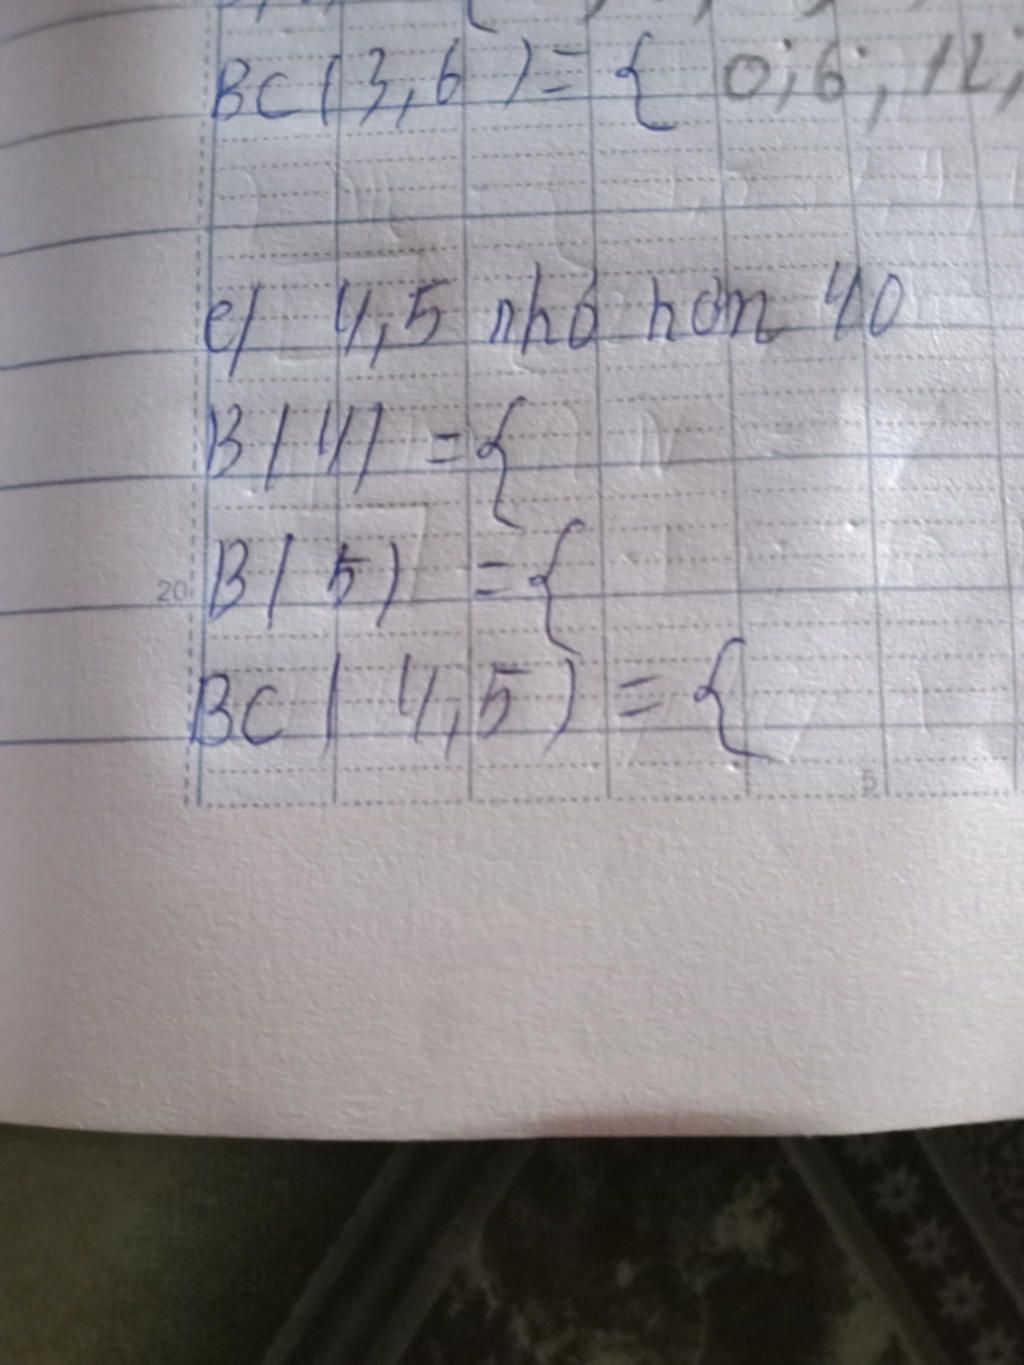 BC(3,6) = { 0; 6; 12;
e/ 4,5 nhỏ hơn 40
B(4) = {
B(5) = {
20
BC(4,5) = {
5